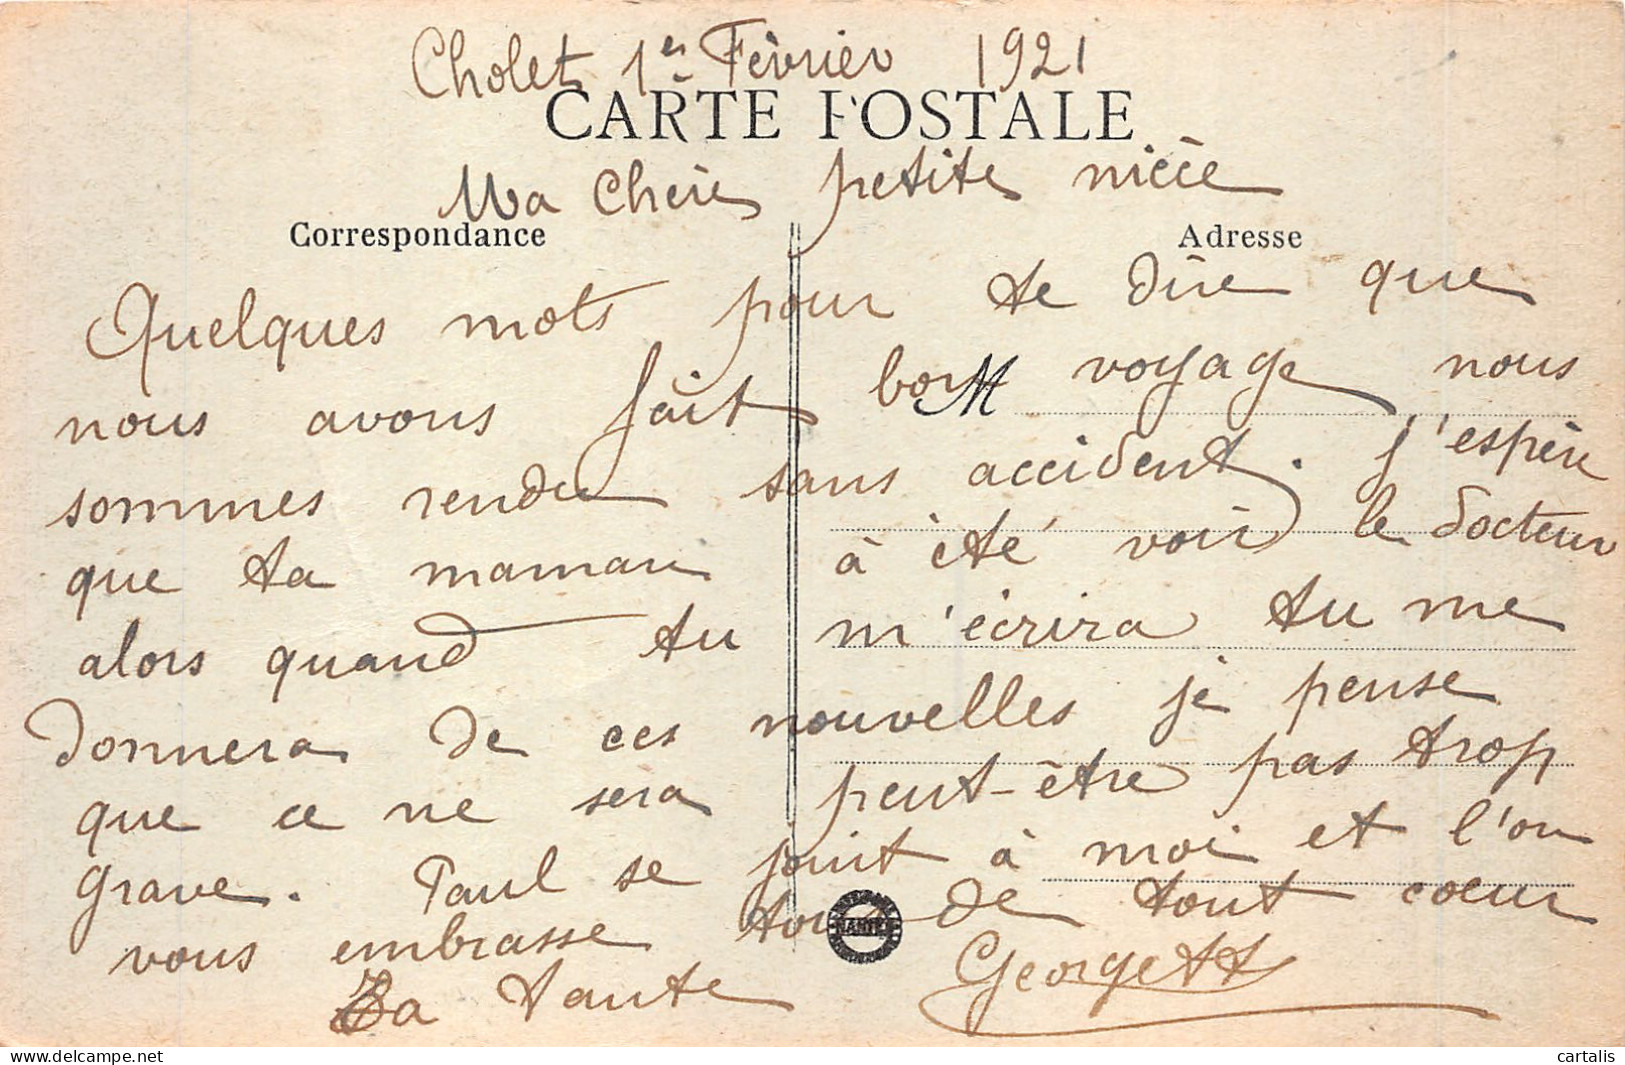 Cholet 1er Février 1921
CARTE POSTALE
Ma Chère petite nièce
Correspondance Adresse
Quelques mots pour te dire que
nous avons fait bon M voyage nous
sommes rendu sans accident. J'espère
que ta maman à été voir le docteur
alors quand tu m'écrira tu me
donnera de ces nouvelles je pense
que ce ne sera peut-être pas trop
grave. Paul se joint à moi et l'on
vous embrasse tous de tout coeur
Ta Tante Georgette
NANTES
delcampe.net
cartalis